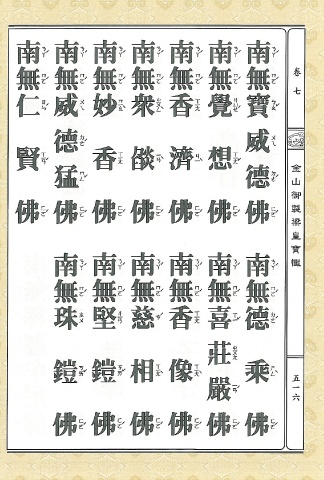 卷七
金山御製梁皇寶懺
五一六
南無寶威德佛 南無德乘佛
南無覺想佛 南無喜莊嚴佛
南無香濟佛 南無香像佛
南無眾燄佛 南無慈相佛
南無妙香佛 南無堅鎧佛
南無威德猛佛 南無珠鎧佛
南無仁賢佛